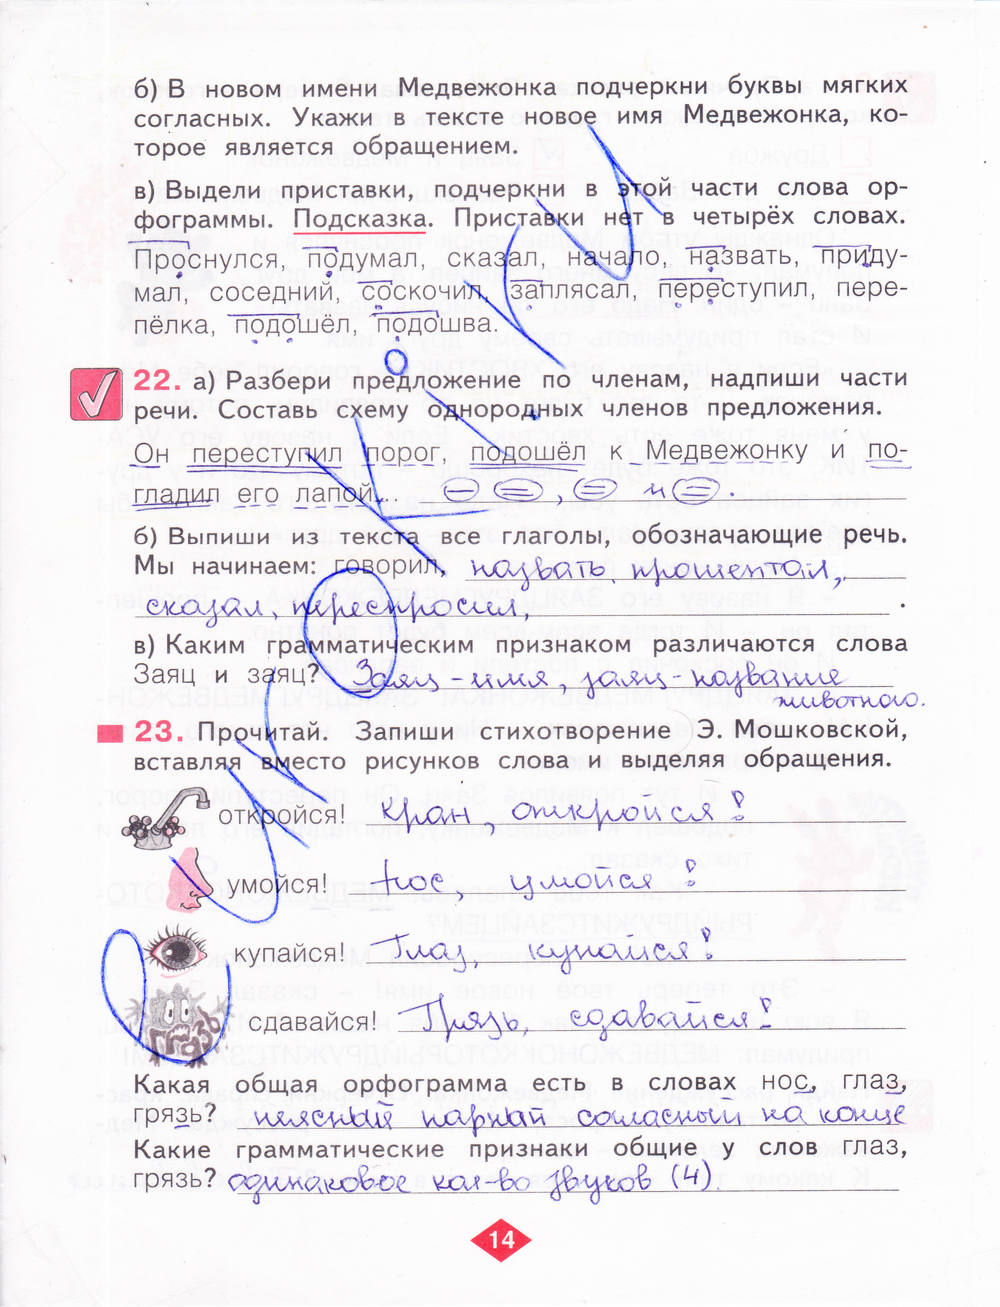 б) В новом имени Медвежонка подчеркни буквы мягких
согласных. Укажи в тексте новое имя Медвежонка, ко-
торое является обращением.
в) Выдели приставки, подчеркни в этой части слова ор-
фограммы. Подсказка. Приставки нет в четырёх словах.
Проснулся, подумал, сказал, начало, назвать, приду-
мал, соседний, соскочил, заплясал, переступил, пере-
пёлка, подошёл, подошва.
22. а) Разбери предложение по членам, надпиши части
речи. Составь схему однородных членов предложения.
Он переступил порог, подошёл к Медвежонку и по-
гладил его лапой... , и .
б) Выпиши из текста все глаголы, обозначающие речь.
Мы начинаем: говорил, назвать, прошептал,
сказал, переспросил, .
в) Каким грамматическим признаком различаются слова
Заяц и заяц? Заяц - имя заяц - название
животного.
23. Прочитай. Запиши стихотворение Э. Мошковской,
вставляя вместо рисунков слова и выделяя обращения.
откройся! Кран откройся!
умойся! Нос, умойся!
купайся! Глаз, купайся!
Грязь
сдавайся! Грязь, сдавайся!
Какая общая орфограмма есть в словах нос, глаз,
грязь? неясный парный согласный на конце
Какие грамматические признаки общие у слов глаз,
грязь? одинаковое кол-во звуков (4).
14